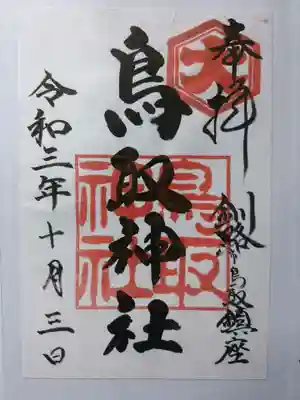 奉拝
大
釧路市鳥取鎮座
鳥取神社
鳥取
神社
令和三年十月三日